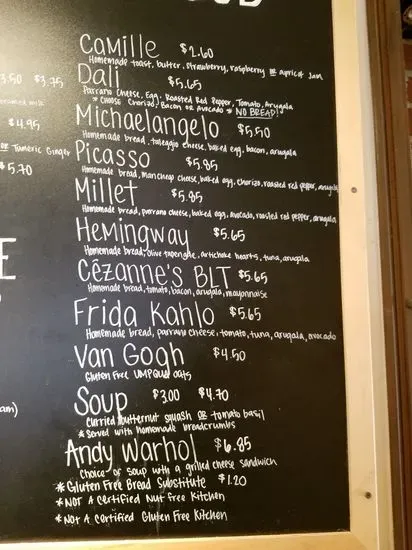 Camille $2.60
Homemade toast, butter, strawberry, raspberry or apricot Jam
3.50 $3.75
Dali $5.65
Parrano Cheese, Egg, Roasted Red Pepper, Tomato, Arugala
* Choose Chorizo, Bacon or Avocado * NO BREAD!
$4.95
Michaelangelo $5.50
Homemade bread, taleggio cheese, baked egg, bacon, arugala
or Tumeric Ginger
Picasso $5.85
$5.70
Homemade bread, manchego cheese, baked egg, chorizo, roasted red pepper, arugala
Millet $5.85
Homemade bread, parrano cheese, baked egg, avocado, roasted red pepper, arugala
Hemingway $5.65
Homemade bread, olive tapengde, artichoke hearts, tuna, arugala
Cêzanne's BLT $5.65
Homemade bread, tomato, bacon, arugala, mayonnaise
Frida Kahlo $5.65
Homemade bread, parrano cheese, tomato, tuna, arugala, avocado
Van Gogh $4.50
Gluten Free Umpqua oats
Soup $3.00 $4.70
Curried butternut squash or tomato basil
* Served with homemade breadcrumbs
Andy Warhol $6.85
Choice of soup with a grilled cheese sandwich
* Gluten Free Bread Substitute $1.20
* NOT A certified Nut free Kitchen
* Not A certified Gluten Free Kitchen